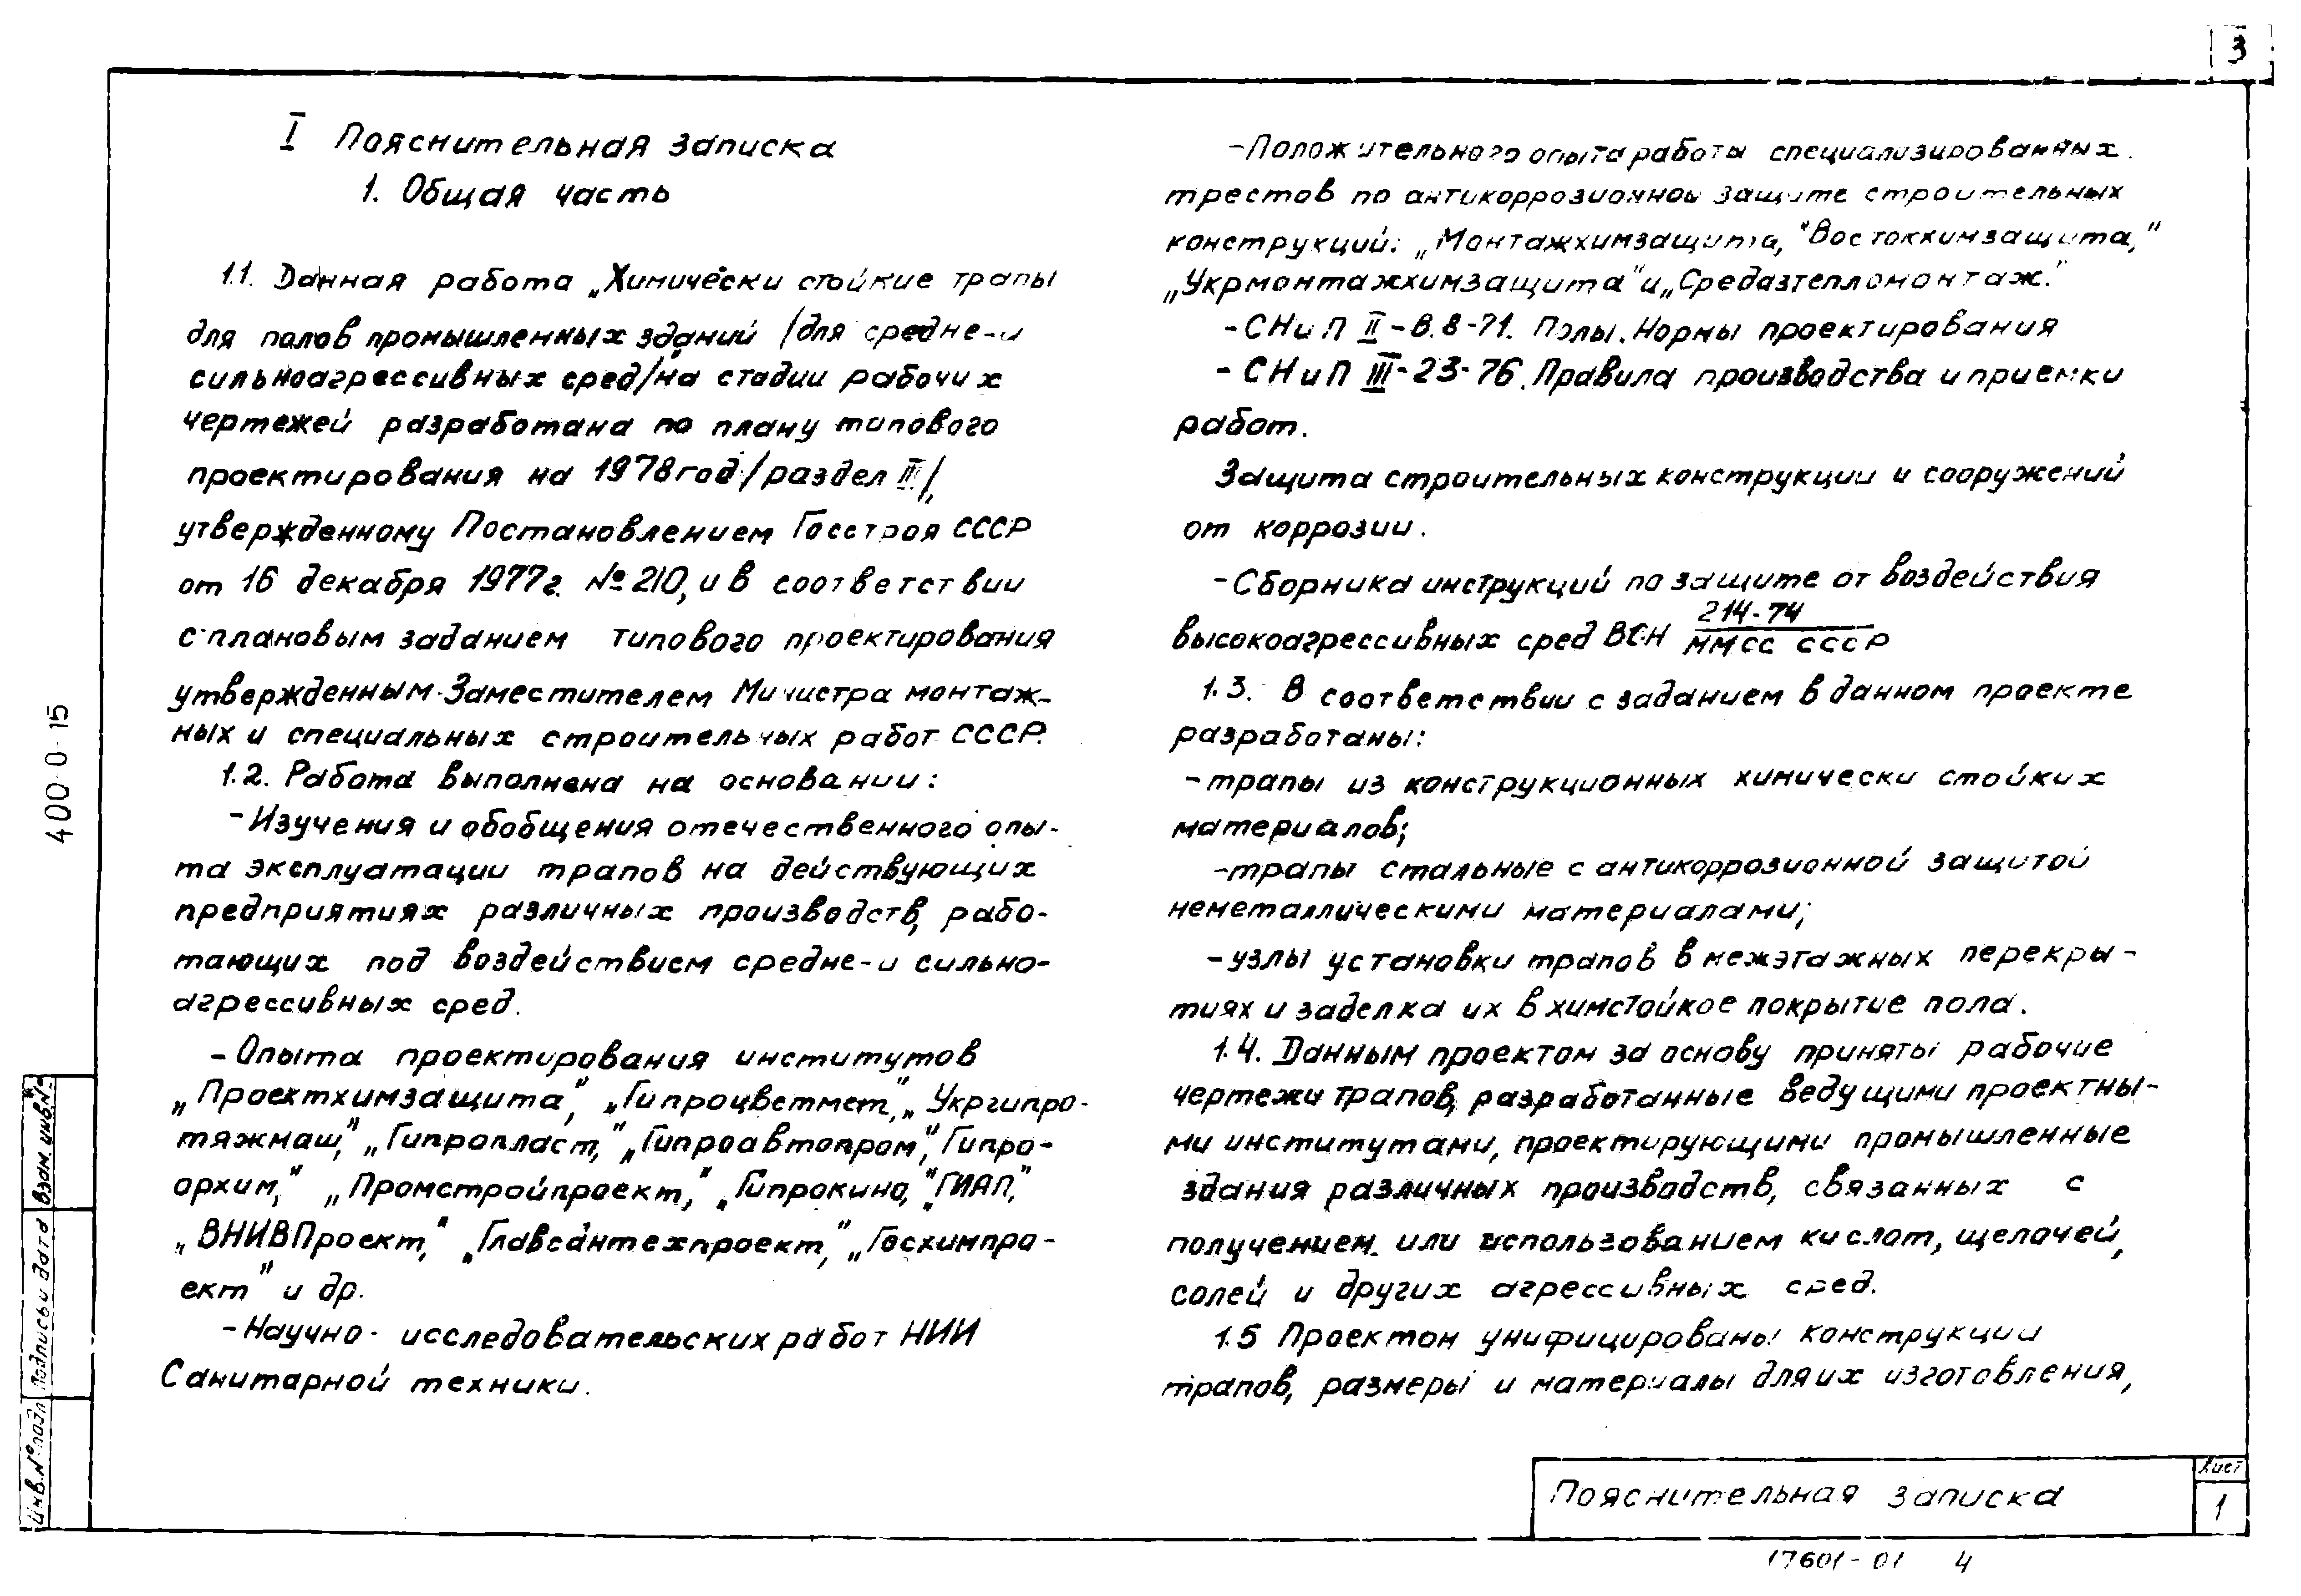 3
I Пояснительная записка
1. Общая часть
1.1. Данная работа „Химически стойкие трапы
для полов промышленных зданий /для средне-и
сильноагрессивных сред/на стадии рабочих
чертежей разработана по плану типового
проектирования на 1978год/раздел III/,
утвержденному Постановлением Госстроя СССР
от 16 декабря 1977г. №210, и в соответствии
с плановым заданием типового проектирования
утвержденным Заместителем Министра монтаж-
ных и специальных строительных работ СССР.
1.2. Работа выполнена на основании:
-Изучения и обобщения отечественного опы-
та эксплуатации трапов на действующих
предприятиях различных производств, рабо-
тающих под воздействием средне-и сильно-
агрессивных сред.
-Опыта проектирования институтов
„Проектхимзащита", „Гипроцветмет", „Укргипро-
тяжмаш", „Гипропласт", „Гипроавтопром", Гипро-
орхим", „Промстройпроект", „Гипрокино", "ГИАП",
„ВНИВПроект", „Главсантехпроект", „Госхимпро-
ект" и др.
-Научно-исследовательских работ НИИ
Санитарной техники.
-Положительного опыта работы специализированных
трестов по антикоррозионной защите строительных
конструкций: „Монтажхимзащита", "Востокхимзащита",
„Укрмонтажхимзащита" и „Средазтепломонтаж".
-СНиП II-В.8-71. Полы. Нормы проектирования
-СНиП III-23-76. Правила производства и приемки
работ.
Защита строительных конструкции и сооружений
от коррозии.
-Сборника инструкций по защите от воздействия
214-74
высокоагрессивных сред ВСН ММСС СССР
1.3. В соответствии с заданием в данном проекте
разработаны:
-трапы из конструкционных химически стойких
материалов;
-трапы стальные с антикоррозионной защитой
неметаллическими материалами;
-узлы установки трапов в межэтажных перекры-
тиях и заделка их в химстойкое покрытие пола.
1.4. Данным проектом за основу приняты рабочие
чертежи трапов, разработанные ведущими проектны-
ми институтами, проектирующими промышленные
здания различных производств, связанных с
получением или использованием кислот, щелочей,
солей и других агрессивных сред.
1.5 Проектом унифицированы конструкции
трапов, размеры и материалы для их изготовления,
400-0-15
Взам. инв.№
Подпись и дата
Инв.№ подл
Пояснительная записка
Лист
1
17601-01 4